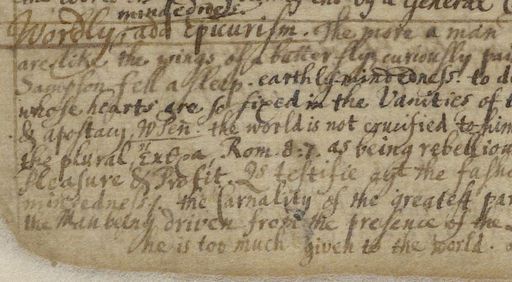 mindedness.
Wordly, add Epicurism. The more a man
are like the wings of a butterfly curiously pai
Sampson fell asleep. earthly mindedness. to d
whose hearts are so fixed in the Vanities of t
& apostacy. when. the world is not crucified to him
the plural, Rom 8.7. as being rebelliou
Pleasure & Profit. to testifie agt the fash
mindedness. the carnality of the greatest par
the Man being driven from the presence of the
he is too much given to the world.